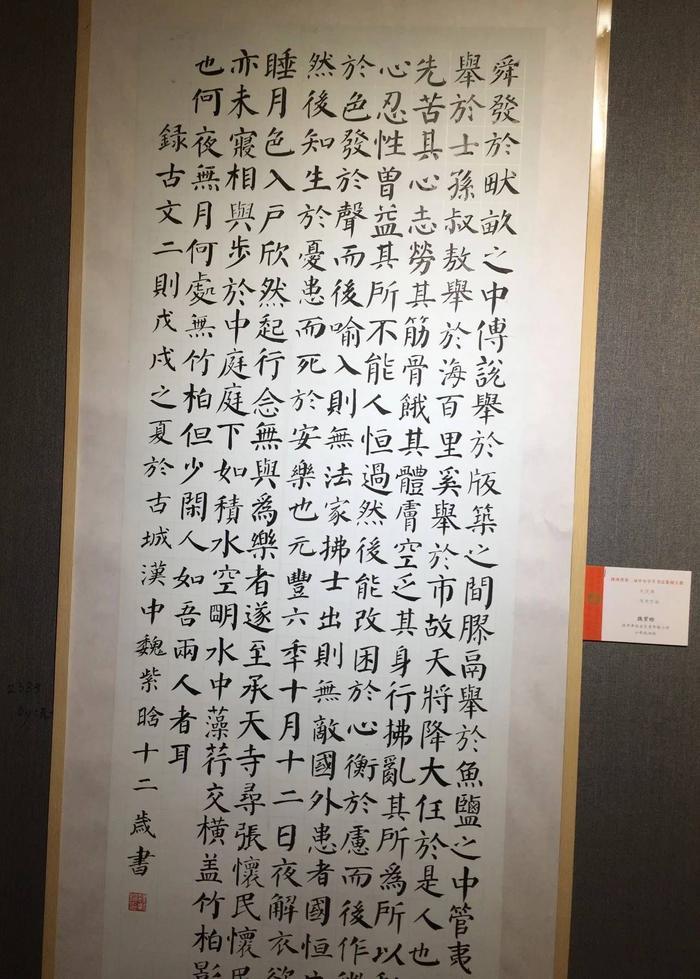 舜發於畎畝之中傅說舉於版築之間膠鬲舉於魚鹽之中管夷
舉於士孫叔敖舉於海百里奚舉於市故天將降大任於是人也
先苦其心志勞其筋骨餓其體膚空乏其身行拂亂其所為所以
心忍性曾益其所不能人恒過然後能改困於心衡於慮而後作
於色發於聲而後喻入則無法家拂士出則無敵國外患者國恒
然後知生於憂患而死於安樂也元豐六秊十月十二日夜解衣欲
睡月色入戶欣然起行念無與爲樂者遂至承天寺尋張懷民懷民
亦未寢相與步於中庭庭下如積水空明水中藻荇交橫盖竹柏影
也何夜無月何處無竹柏但少閑人如吾兩人者耳
録古文二則戊戌之夏於古城漢中魏紫晗十二歲書